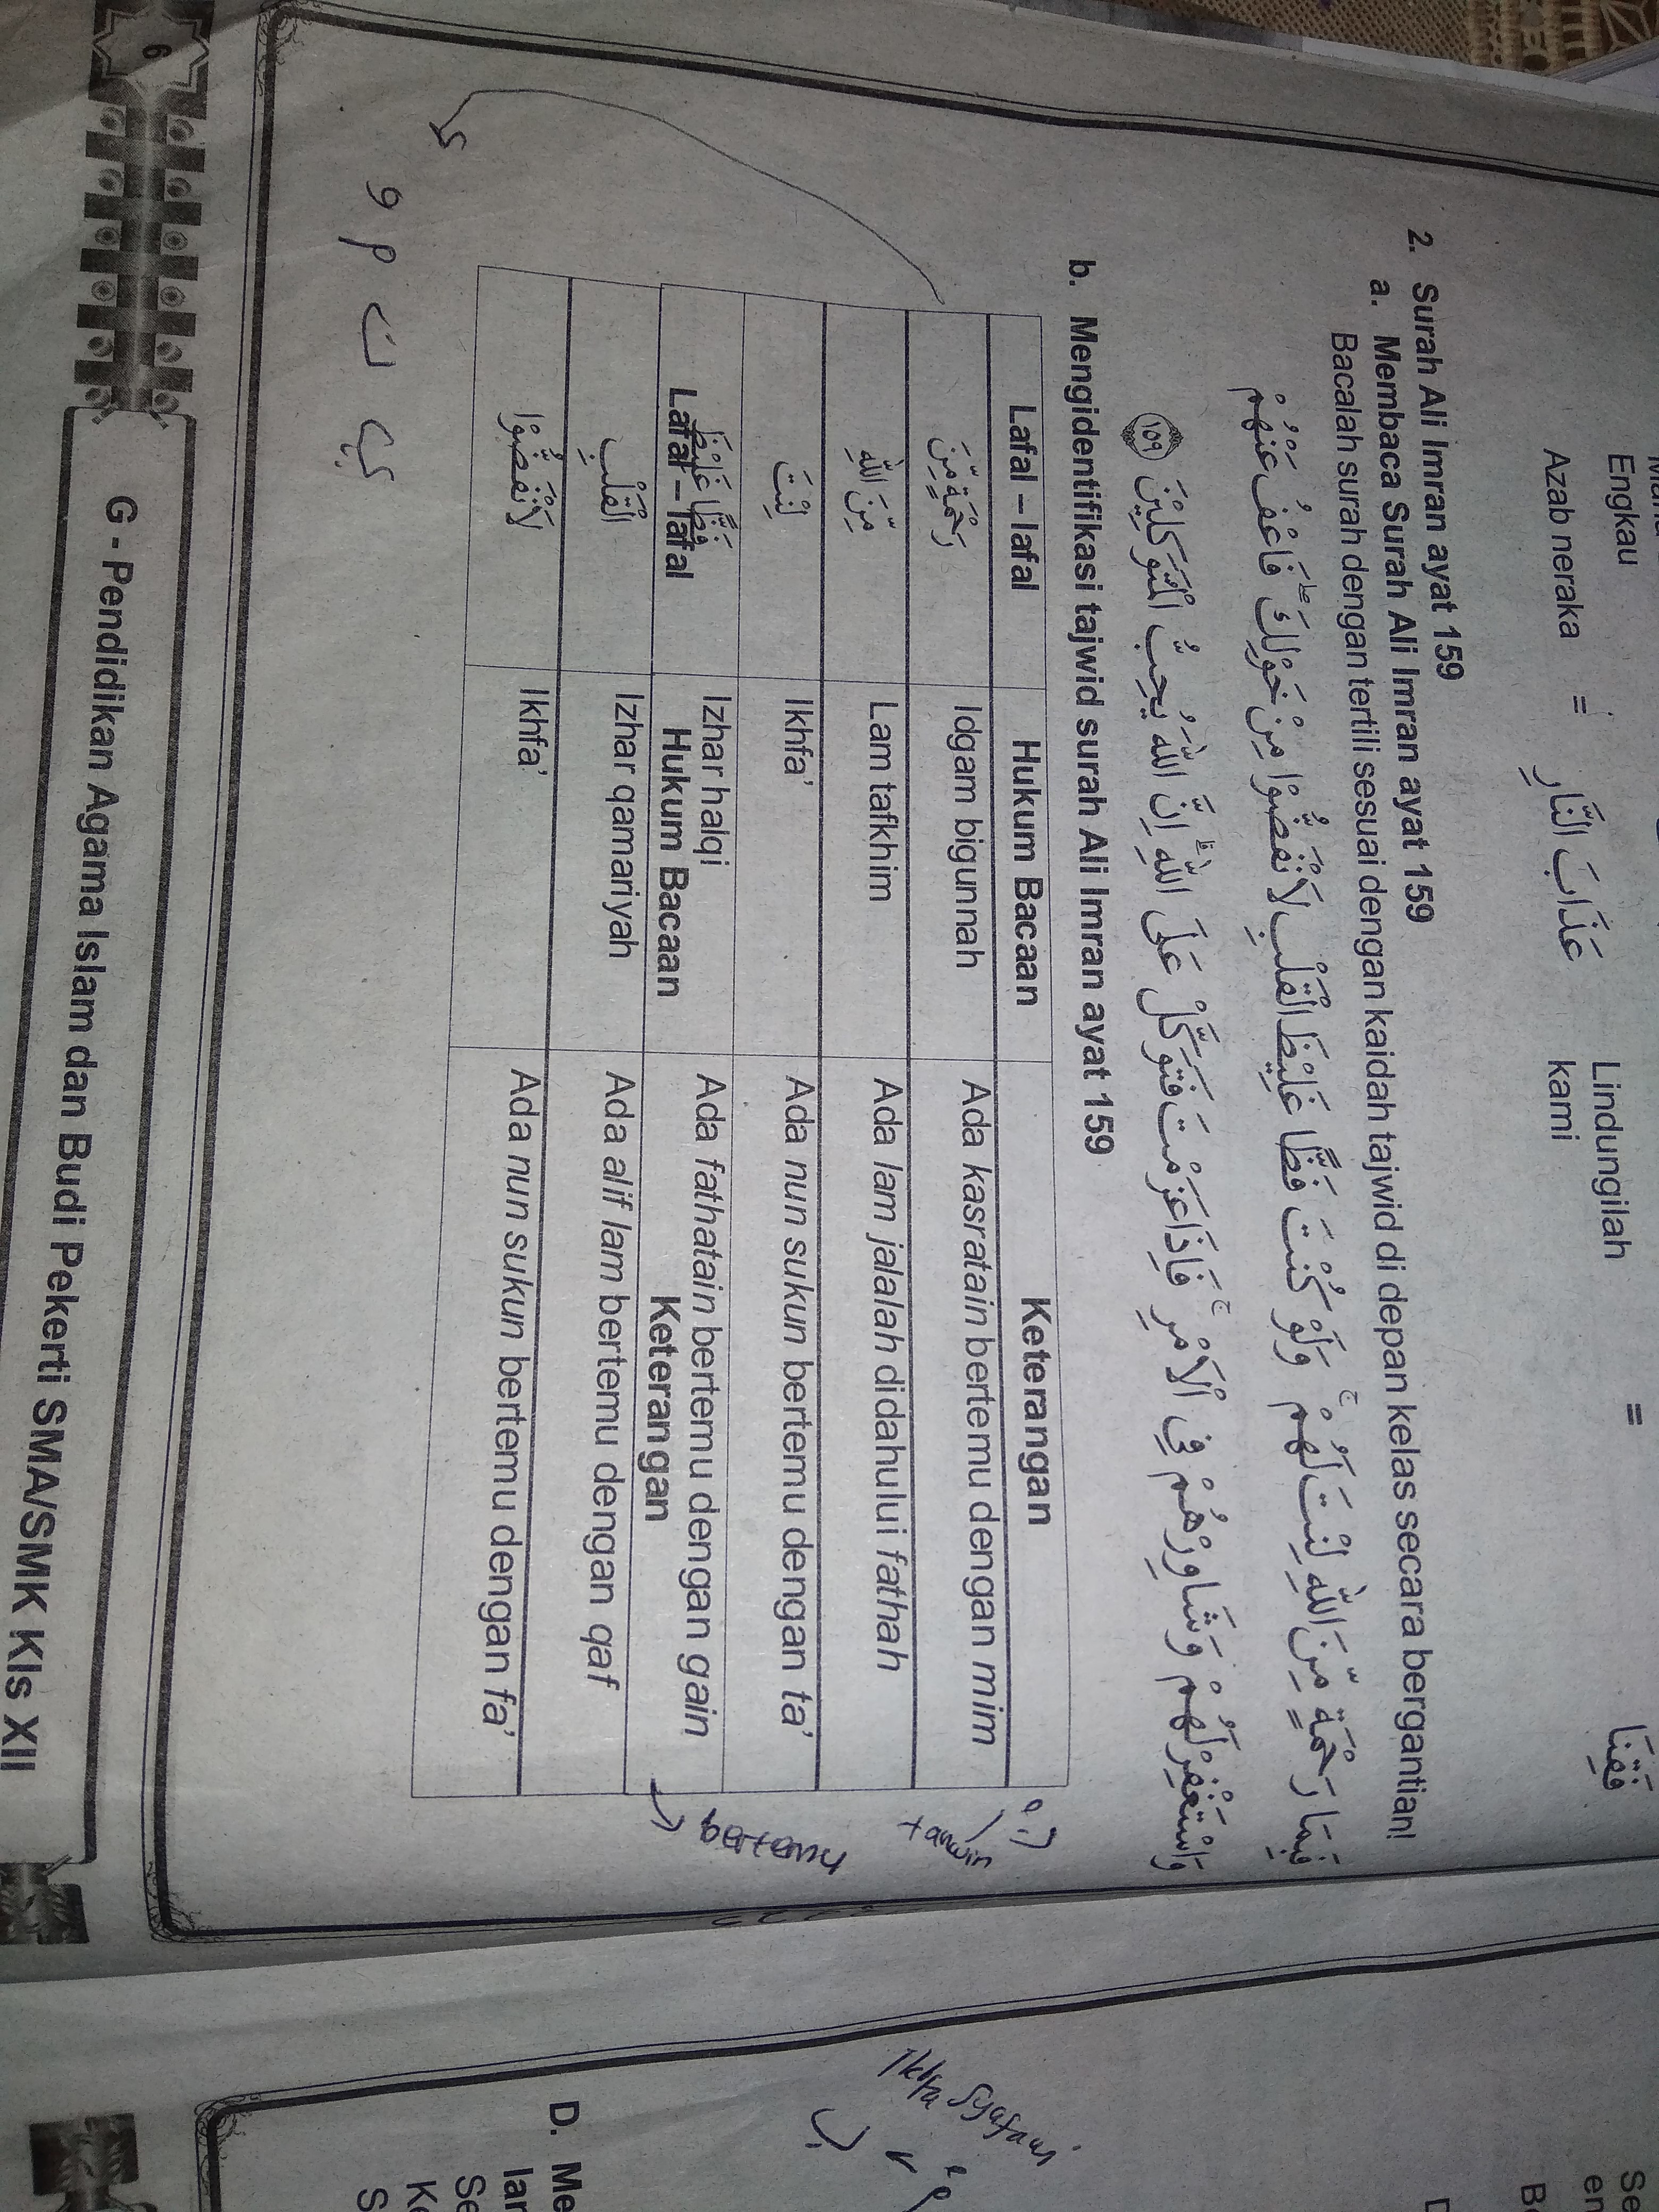 Engkau
Lindungilah
=
فَقِنَا
Azab neraka
=
عَذَابَ النَّارِ
kami
2. Surah Ali Imran ayat 159
a. Membaca Surah Ali Imran ayat 159
Bacalah surah dengan tertili sesuai dengan kaidah tajwid di depan kelas secara bergantian!
فَبِمَا رَحْمَةٍ مِّنَ اللّٰهِ لِنْتَ لَهُمْ ۚ وَلَوْ كُنْتَ فَظًّا غَلِيْظَ الْقَلْبِ لَانْفَضُّوْا مِنْ حَوْلِكَ ۖ فَاعْفُ عَنْهُمْ
وَاسْتَغْفِرْ لَهُمْ وَشَاوِرْهُمْ فِى الْاَمْرِ ۚ فَاِذَا عَزَمْتَ فَتَوَكَّلْ عَلَى اللّٰهِ ۗ اِنَّ اللّٰهَ يُحِبُّ الْمُتَوَكِّلِيْنَ ١٥٩
b. Mengidentifikasi tajwid surah Ali Imran ayat 159
Lafal – lafal
Hukum Bacaan
Keterangan
رَحْمَةٍ مِّنَ
Idgam bigunnah
Ada kasratain bertemu dengan mim
tanwin
مِّنَ اللّٰهِ
Lam tafkhim
Ada lam jalalah didahului fathah
لِنْتَ
Ikhfa'
Ada nun sukun bertemu dengan ta'
فَظًّا غَلِيْظَ
Izhar halqi
Ada fathatain bertemu dengan gain
Lafal – lafal
Hukum Bacaan
Keterangan
الْقَلْبِ
Izhar qamariyah
Ada alif lam bertemu dengan qaf
لَانْفَضُّوْا
Ikhfa'
Ada nun sukun bertemu dengan fa'
و م ن ي
6
G - Pendidikan Agama Islam dan Budi Pekerti SMA/SMK Kls XII
Ikhfa Syafawi
ب
D. Me